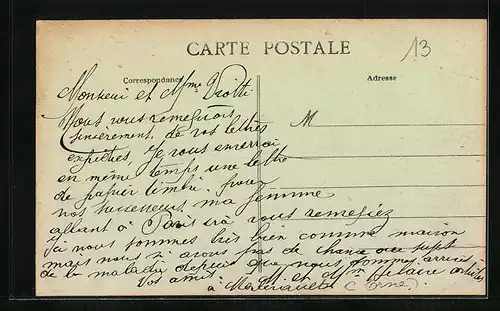 CARTE POSTALE
13
Correspondance
Adresse
M
Monsieur et Mme Viotti
Nous vous remercions
sincèrement, de vos lettres
expédiées, je vous enverrai
en même temps une lettre
de papier timbré. pour
nos successeurs ma femme
allant à Paris ira vous remerciez
Ici nous sommes très bien comme maison
mais nous n'avons pas de chance au sujet
de la maladie depuis que nous sommes arrivés
Vos amis M et Mme
à (Orne)